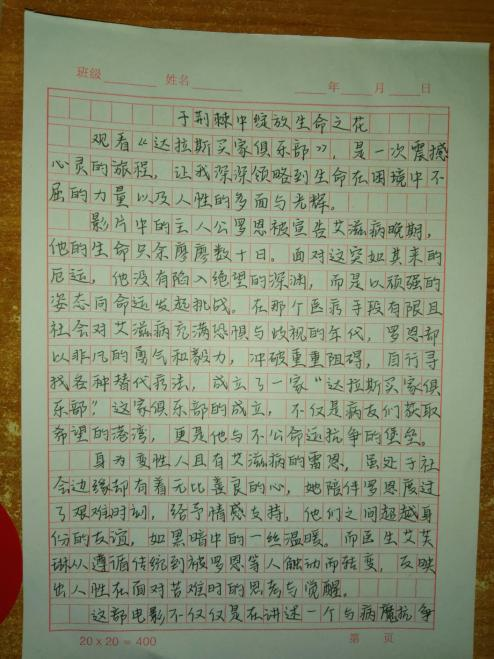 班级 姓名 年 月 日
于荆棘中绽放生命之花
观看“达拉斯买家俱乐部”，是一次震撼
心灵的旅程，让我深深领略到生命在困境中不
屈的力量以及人性的多面与光辉。
影片中的主人公罗恩被宣告艾滋病晚期，
他的生命只余廖廖数十日。面对这突如其来的
厄运，他没有陷入绝望的深渊，而是以顽强的
姿态向命运发起挑战。在那个医疗手段有限且
社会对艾滋病充满恐惧与歧视的年代，罗恩却
以非凡的勇气和毅力，冲破重重阻碍，自行寻
找各种替代疗法，成立了一家“达拉斯买家俱
乐部”。这家俱乐部的成立，不仅是病友们获取
希望的港湾，更是他与不公命运抗争的堡垒。
身为变性人且有艾滋病的雷恩，虽处于社
会边缘却有着无比善良的心，她陪伴罗恩度过
了艰难时刻，给予情感支持，他们之间超越身
份的友谊，如黑暗中的一丝温暖。而医生艾芙
琳从遵循传统到被罗恩等人触动而转变，反映
出人性在面对苦难时的思考与觉醒。
这部电影不仅仅是在讲述一个与病魔抗争
20×20=400 第 页